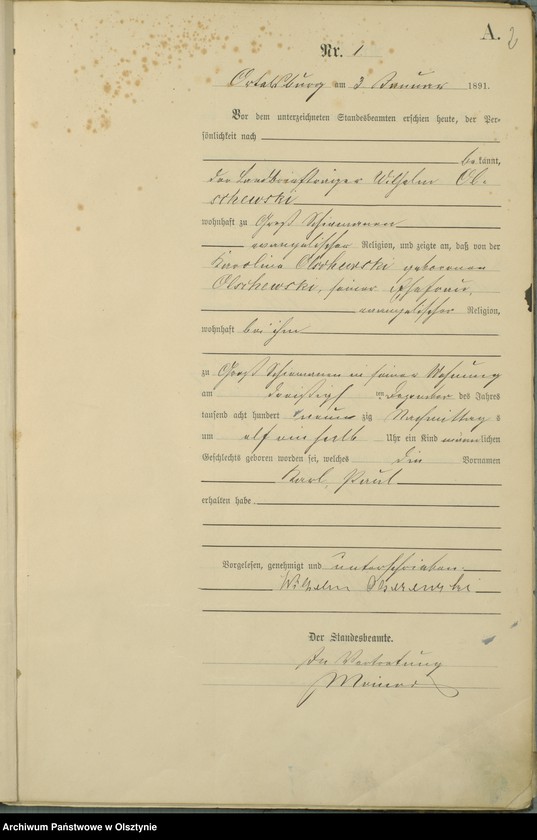 A. 2
Nr. 1
Ortelsburg am 3 Januar 1891.
Vor dem unterzeichneten Standesbeamten erschien heute, der Per-
sönlichkeit nach
bekannt,
der Landbriefträger Wilhelm Ol-
schewski
wohnhaft zu Groß Schiemanen
evangelischer Religion, und zeigte an, daß von der
Karoline Olschewski geborenen
Olschewski, seiner Ehefrau,
evangelischer Religion,
wohnhaft bei ihm
zu Groß Schiemanen in seiner Wohnung
am dreißigsten Dezember des Jahres
tausend acht hundert neunzig Nachmittag s
um elf ein halb Uhr ein Kind männlichen
Geschlechts geboren worden sei, welches die Vornamen
Karl, Paul
erhalten habe.
Vorgelesen, genehmigt und unterschrieben.
Wilhelm
Der Standesbeamte.
In Vertretung
Archiwum Państwowe w Olsztynie